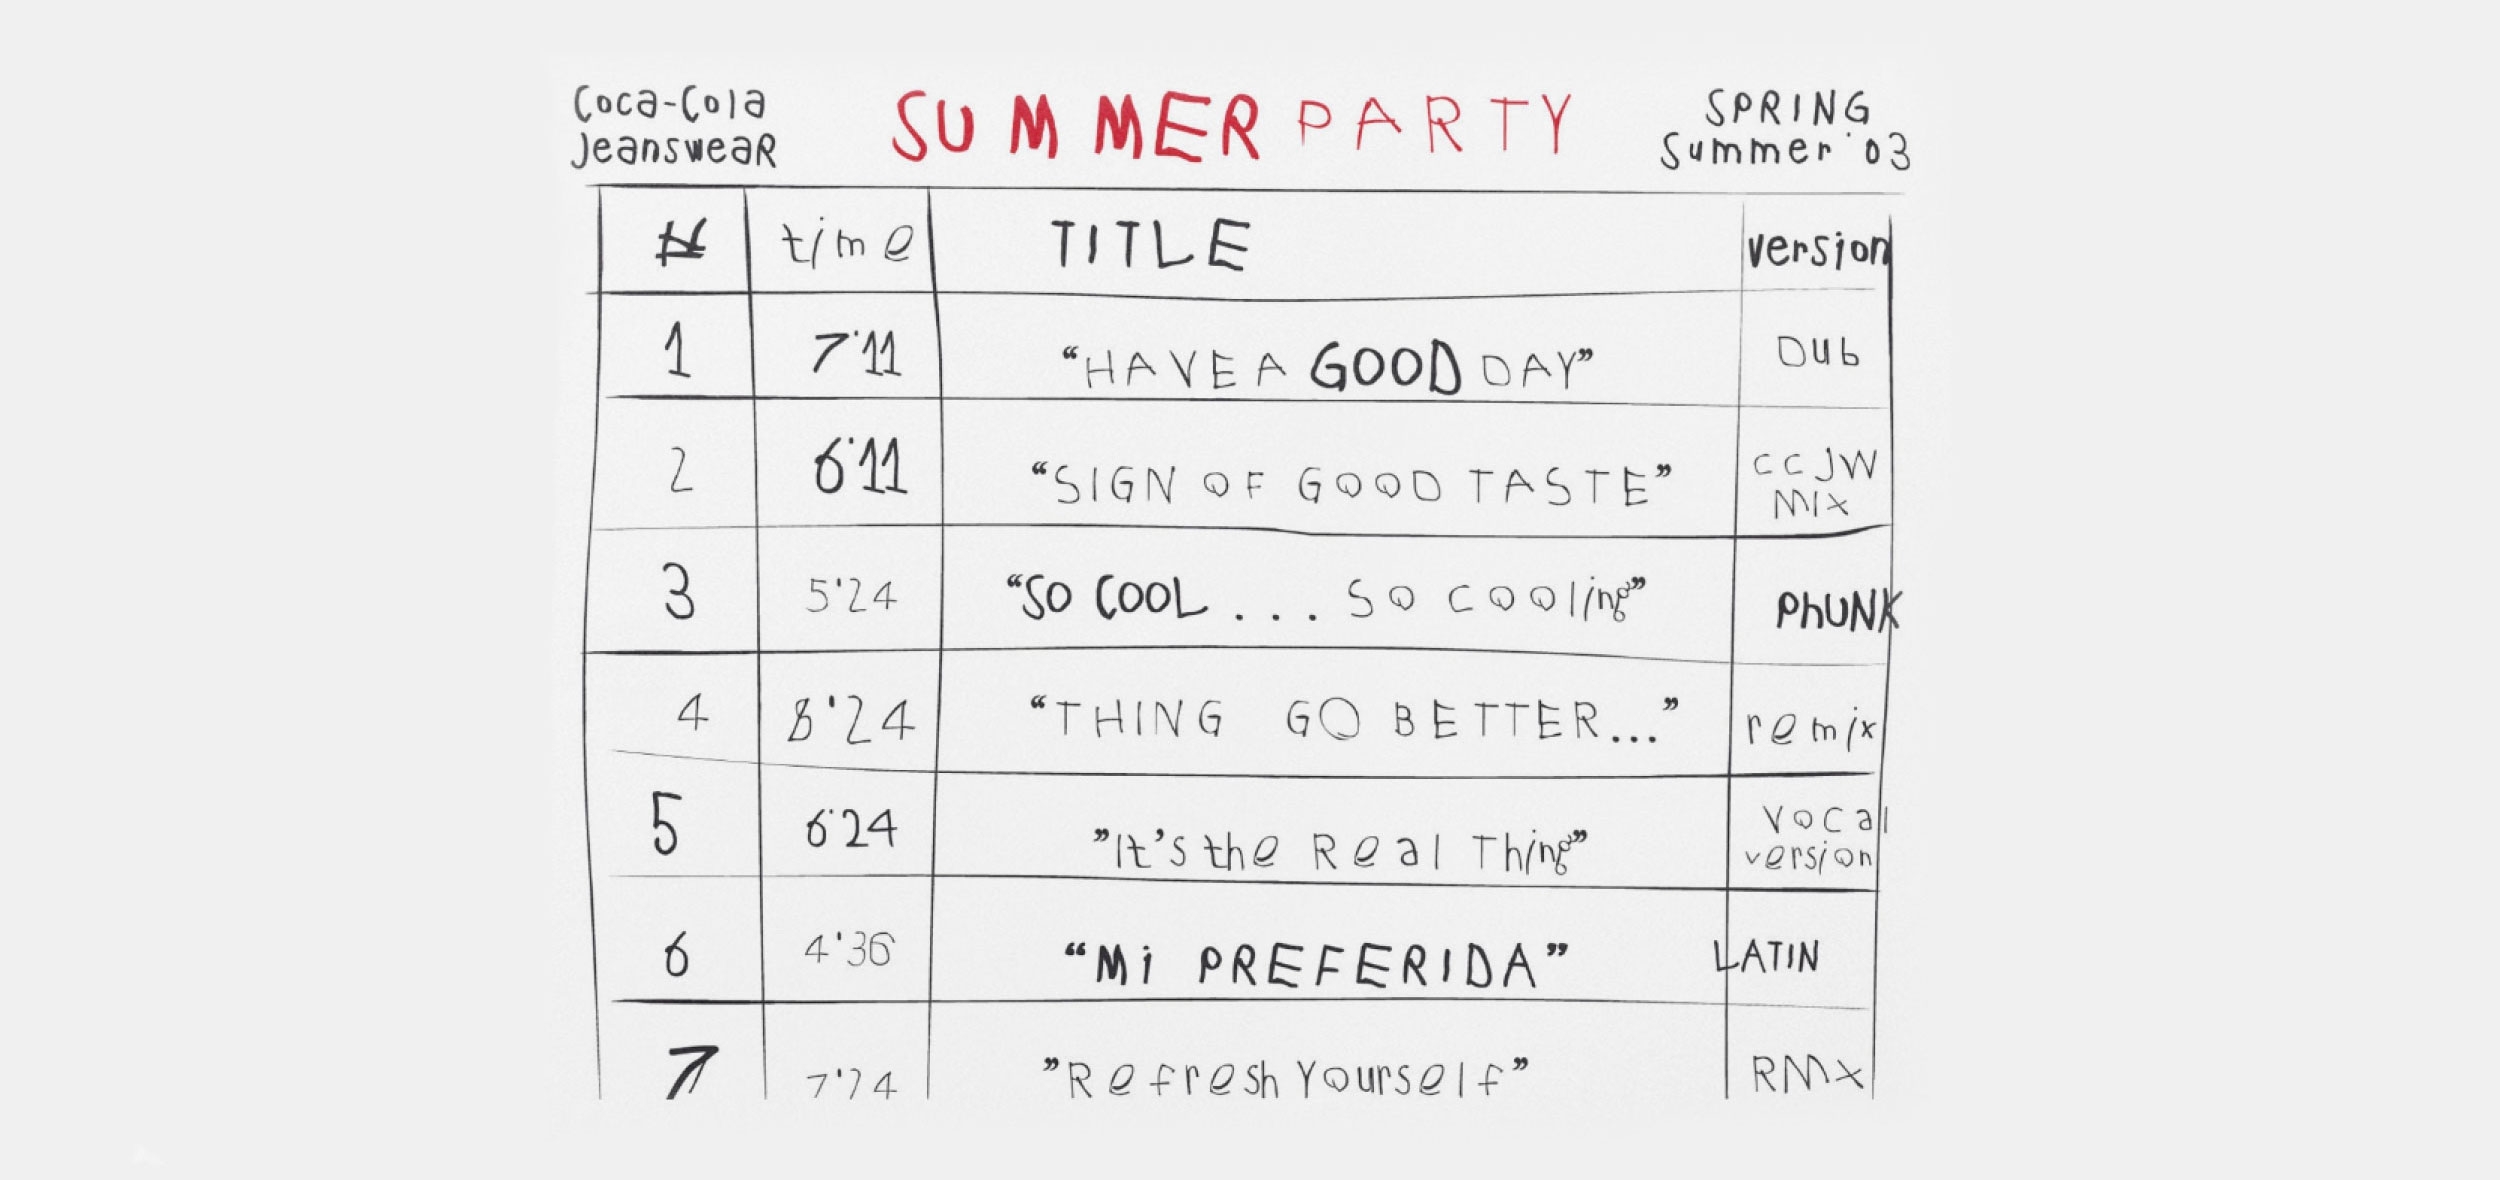 Coca-Cola
JeansweaR
SUMMER PARTY
SPRING
Summer '03
# time TITLE version
1 7'11 “HAVE A GOOD DAY” DUb
2 6'11 “SIGN OF GOOD TASTE” CCJW
MIX
3 5'24 “SO COOL... SO COOling” PhUNK
4 8'24 “THING GO BETTER...” remix
5 6'24 ”It’s the Real Thing” vocal
version
6 4'36 “Mi PREFERIDA” LATIN
7 7'24 ”Refresh Yourself” RMX